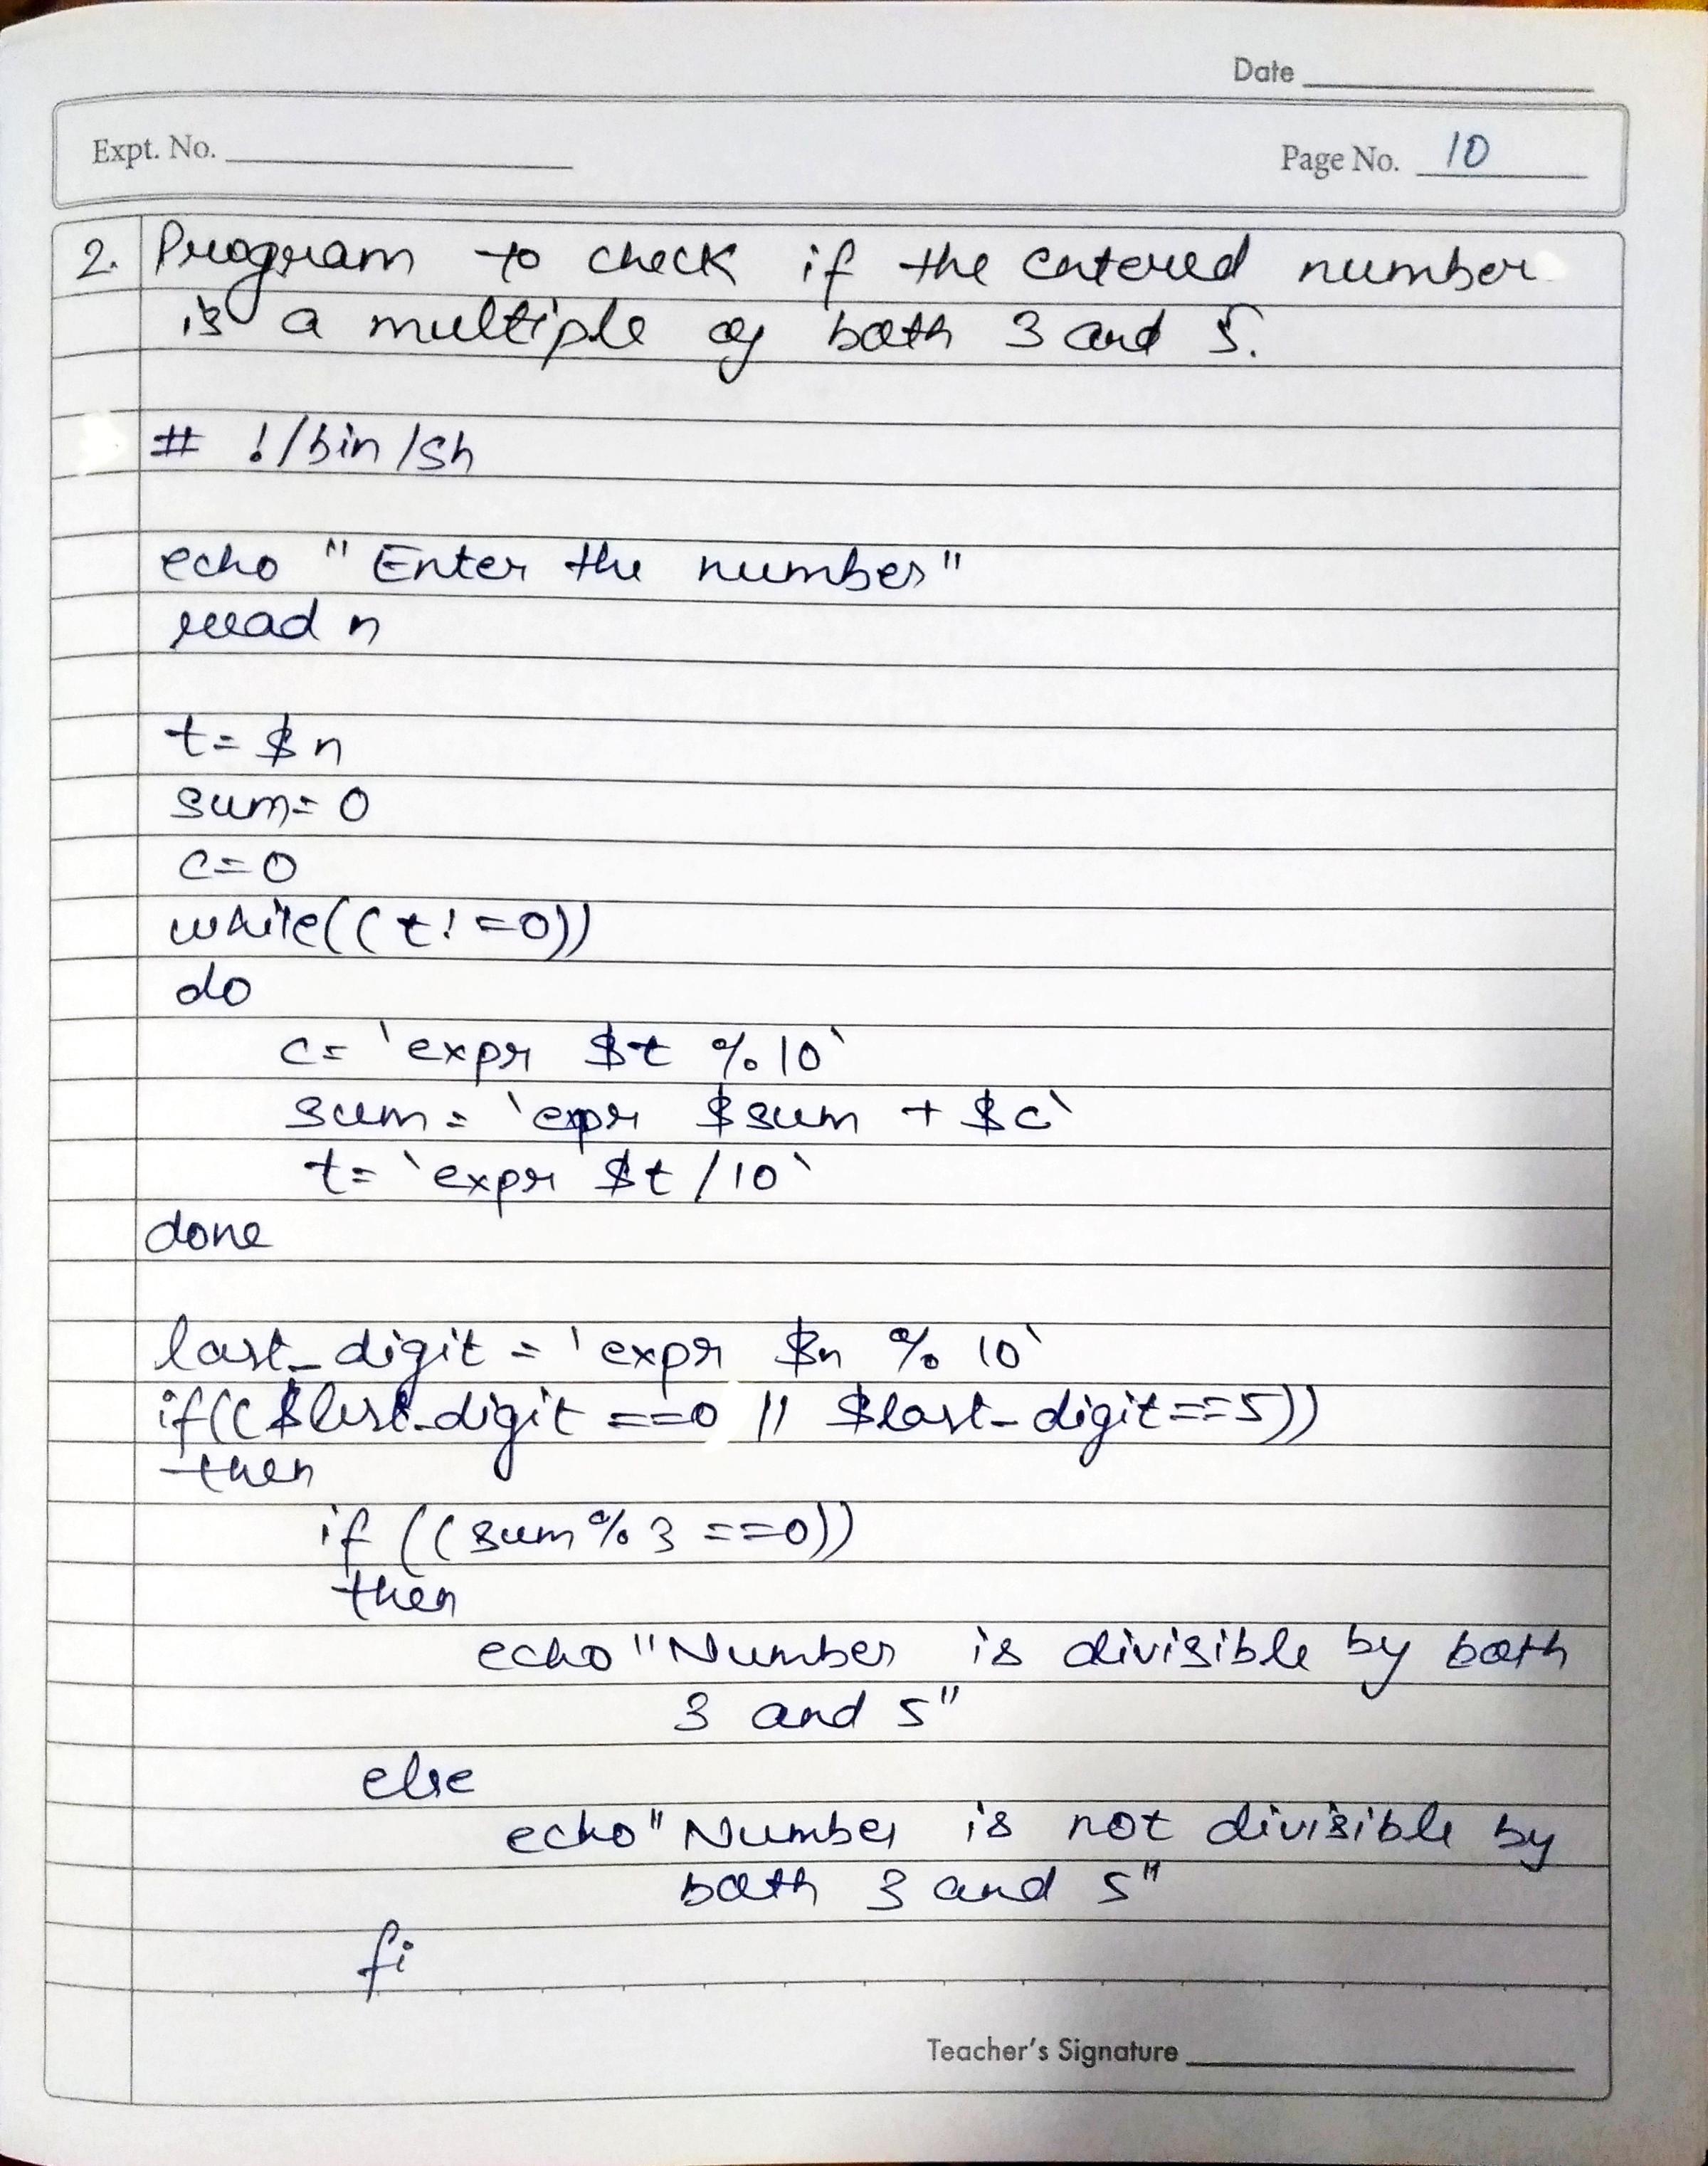 Date
Expt. No.
Page No. 10
2. Program to check if the entered number
is a multiple of both 3 and 5.
# !/bin/sh
echo "Enter the number"
read n
t=$n
sum=0
c=0
while((t!=0))
do
c=`expr $t %10`
sum=`expr $sum + $c`
t=`expr $t /10`
done
last_digit=`expr $n % 10`
if(($last_digit ==0 || $last_digit==5))
then
if ((sum%3 ==0))
then
echo "Number is divisible by both
3 and 5"
else
echo "Number is not divisible by
both 3 and 5"
fi
Teacher's Signature